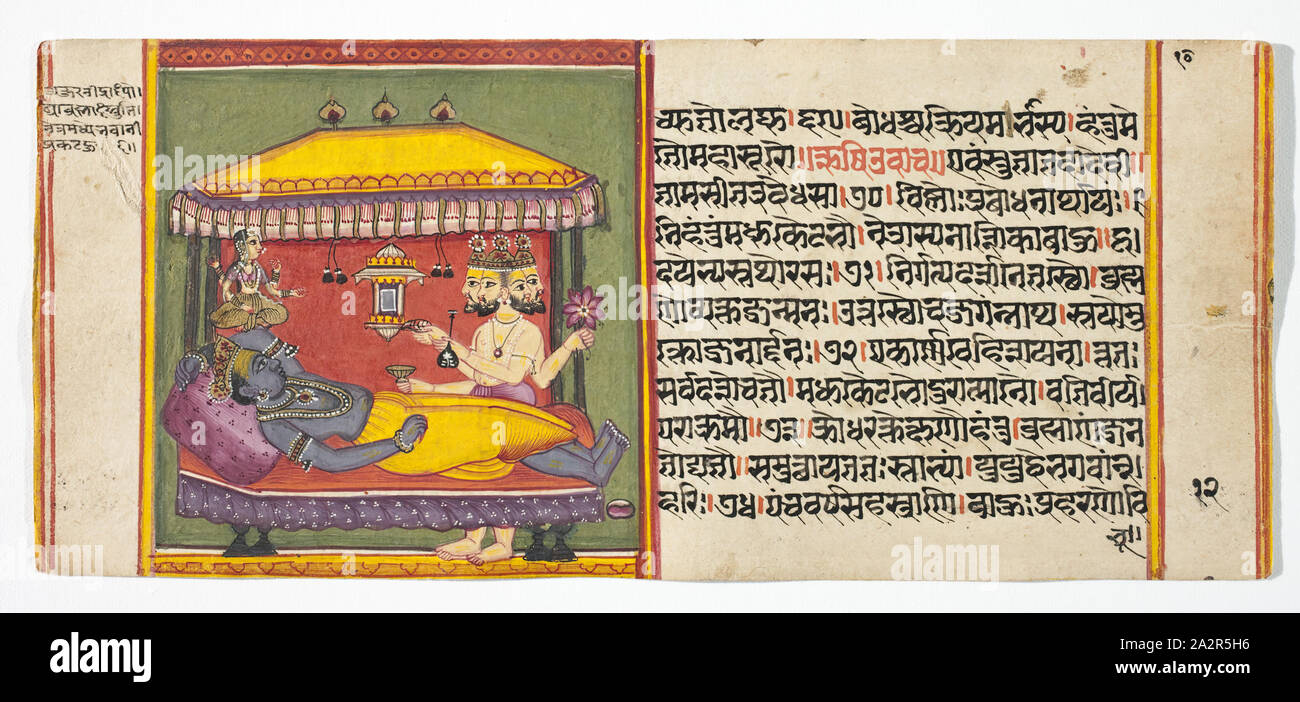 च्युतो लघु। बोधश्च क्रियतामस्य। हंतुमे
तौ महासुरौ॥ ऋषिरुवाच॥ एवं स्तुता तदा देवी॥
तामसी तत्र वेधसा। ७०। विष्णोः प्रबोधनार्थाय।
निहंतुं मधुकैटभौ। नेत्रास्यनासिकाबाहु॥ हृ
दयेभ्यस्तथोरसः। ७१। निर्गत्य दर्शने तस्थौ। ब्रह्म
णोव्यक्तजन्मनः। उत्तस्थौ च जगन्नाथ। स्तया मु
क्तो जनार्दनः। ७२। एकार्णवेहिशयना। त्ततः
स ददृशे च तौ। मधुकैटभौ दुरात्मानौ। वतिवीर्य
पराक्रमौ। ७३। क्रोधरक्तेक्षणौ हंतुं। ब्रह्माणं जनि
तोद्यमौ। समुत्थाय ततः स्ताभ्यां। युयुधे भगवान्
हरिः। ७४। पंचवर्षसहस्राणि। बाहुःप्रहरणो वि
भुः॥
१२
alamy
Image ID: A2R5H6
www.alamy.com